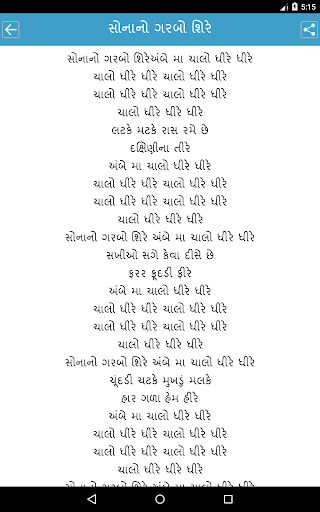 5:15
સોનાનો ગરબો શિરે
સોનાનો ગરબો શિરેઅંબે મા ચાલો ધીરે ધીરે
ચાલો ધીરે ધીરે ચાલો ધીરે ધીરે
ચાલો ધીરે ધીરે ચાલો ધીરે ધીરે
ચાલો ધીરે ધીરે
લટકે મટકે રાસ રમે છે
દક્ષિણીના તીરે
અંબે મા ચાલો ધીરે ધીરે
ચાલો ધીરે ધીરે ચાલો ધીરે ધીરે
ચાલો ધીરે ધીરે ચાલો ધીરે ધીરે
ચાલો ધીરે ધીરે
સોનાનો ગરબો શિરે અંબે મા ચાલો ધીરે ધીરે
સખીઓ સંગે કેવા દીસે છે
ફરર ફૂદડી ફીરે
અંબે મા ચાલો ધીરે ધીરે
ચાલો ધીરે ધીરે ચાલો ધીરે ધીરે
ચાલો ધીરે ધીરે ચાલો ધીરે ધીરે
ચાલો ધીરે ધીરે
સોનાનો ગરબો શિરે અંબે મા ચાલો ધીરે ધીરે
ચૂંદડી ચટકે મુખડું મલકે
હાર ગળા હેમ હીરે
અંબે મા ચાલો ધીરે ધીરે
ચાલો ધીરે ધીરે ચાલો ધીરે ધીરે
ચાલો ધીરે ધીરે ચાલો ધીરે ધીરે
ચાલો ધીરે ધીરે
સોનાનો ગરબો શિરે અંબે મા ચાલો ધીરે ધીરે